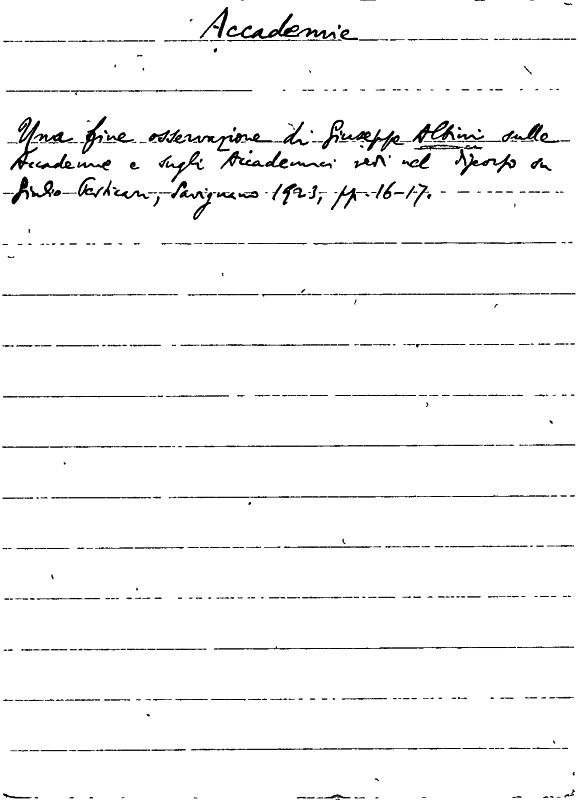 Accademie
Una fine osservazione di Giuseppe Albini sulle
Accademie e sugli Accademici vedi nel discorso su
Giulio Perticari, Savignano 1923, pp. 16-17.